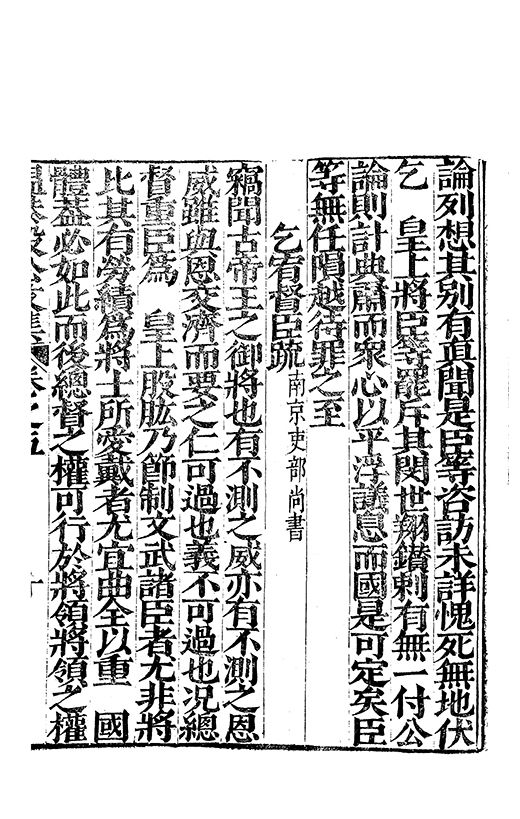 論列想其别有真聞是臣等咨訪未詳愧死無地伏
乞　皇上將臣等罷斥其閔世翔鑚剌有無一付公
論則計典肅而衆心以平浮議息而國是可定矣臣
等無任隕越待罪之至
乞宥督臣疏南京吏部尚書
竊聞古帝王之御將也有不測之威亦有不測之恩
威雖與恩交濟而要之仁可過也義不可過也況總
督重臣爲　皇上股肱乃節制文武諸臣者尤非將
比其有勞績爲將士所愛戴者尤宜曲全以重　國
體葢必如此而後總督之權可行於將領將領之權
溫恭毅公文集　卷之五　十